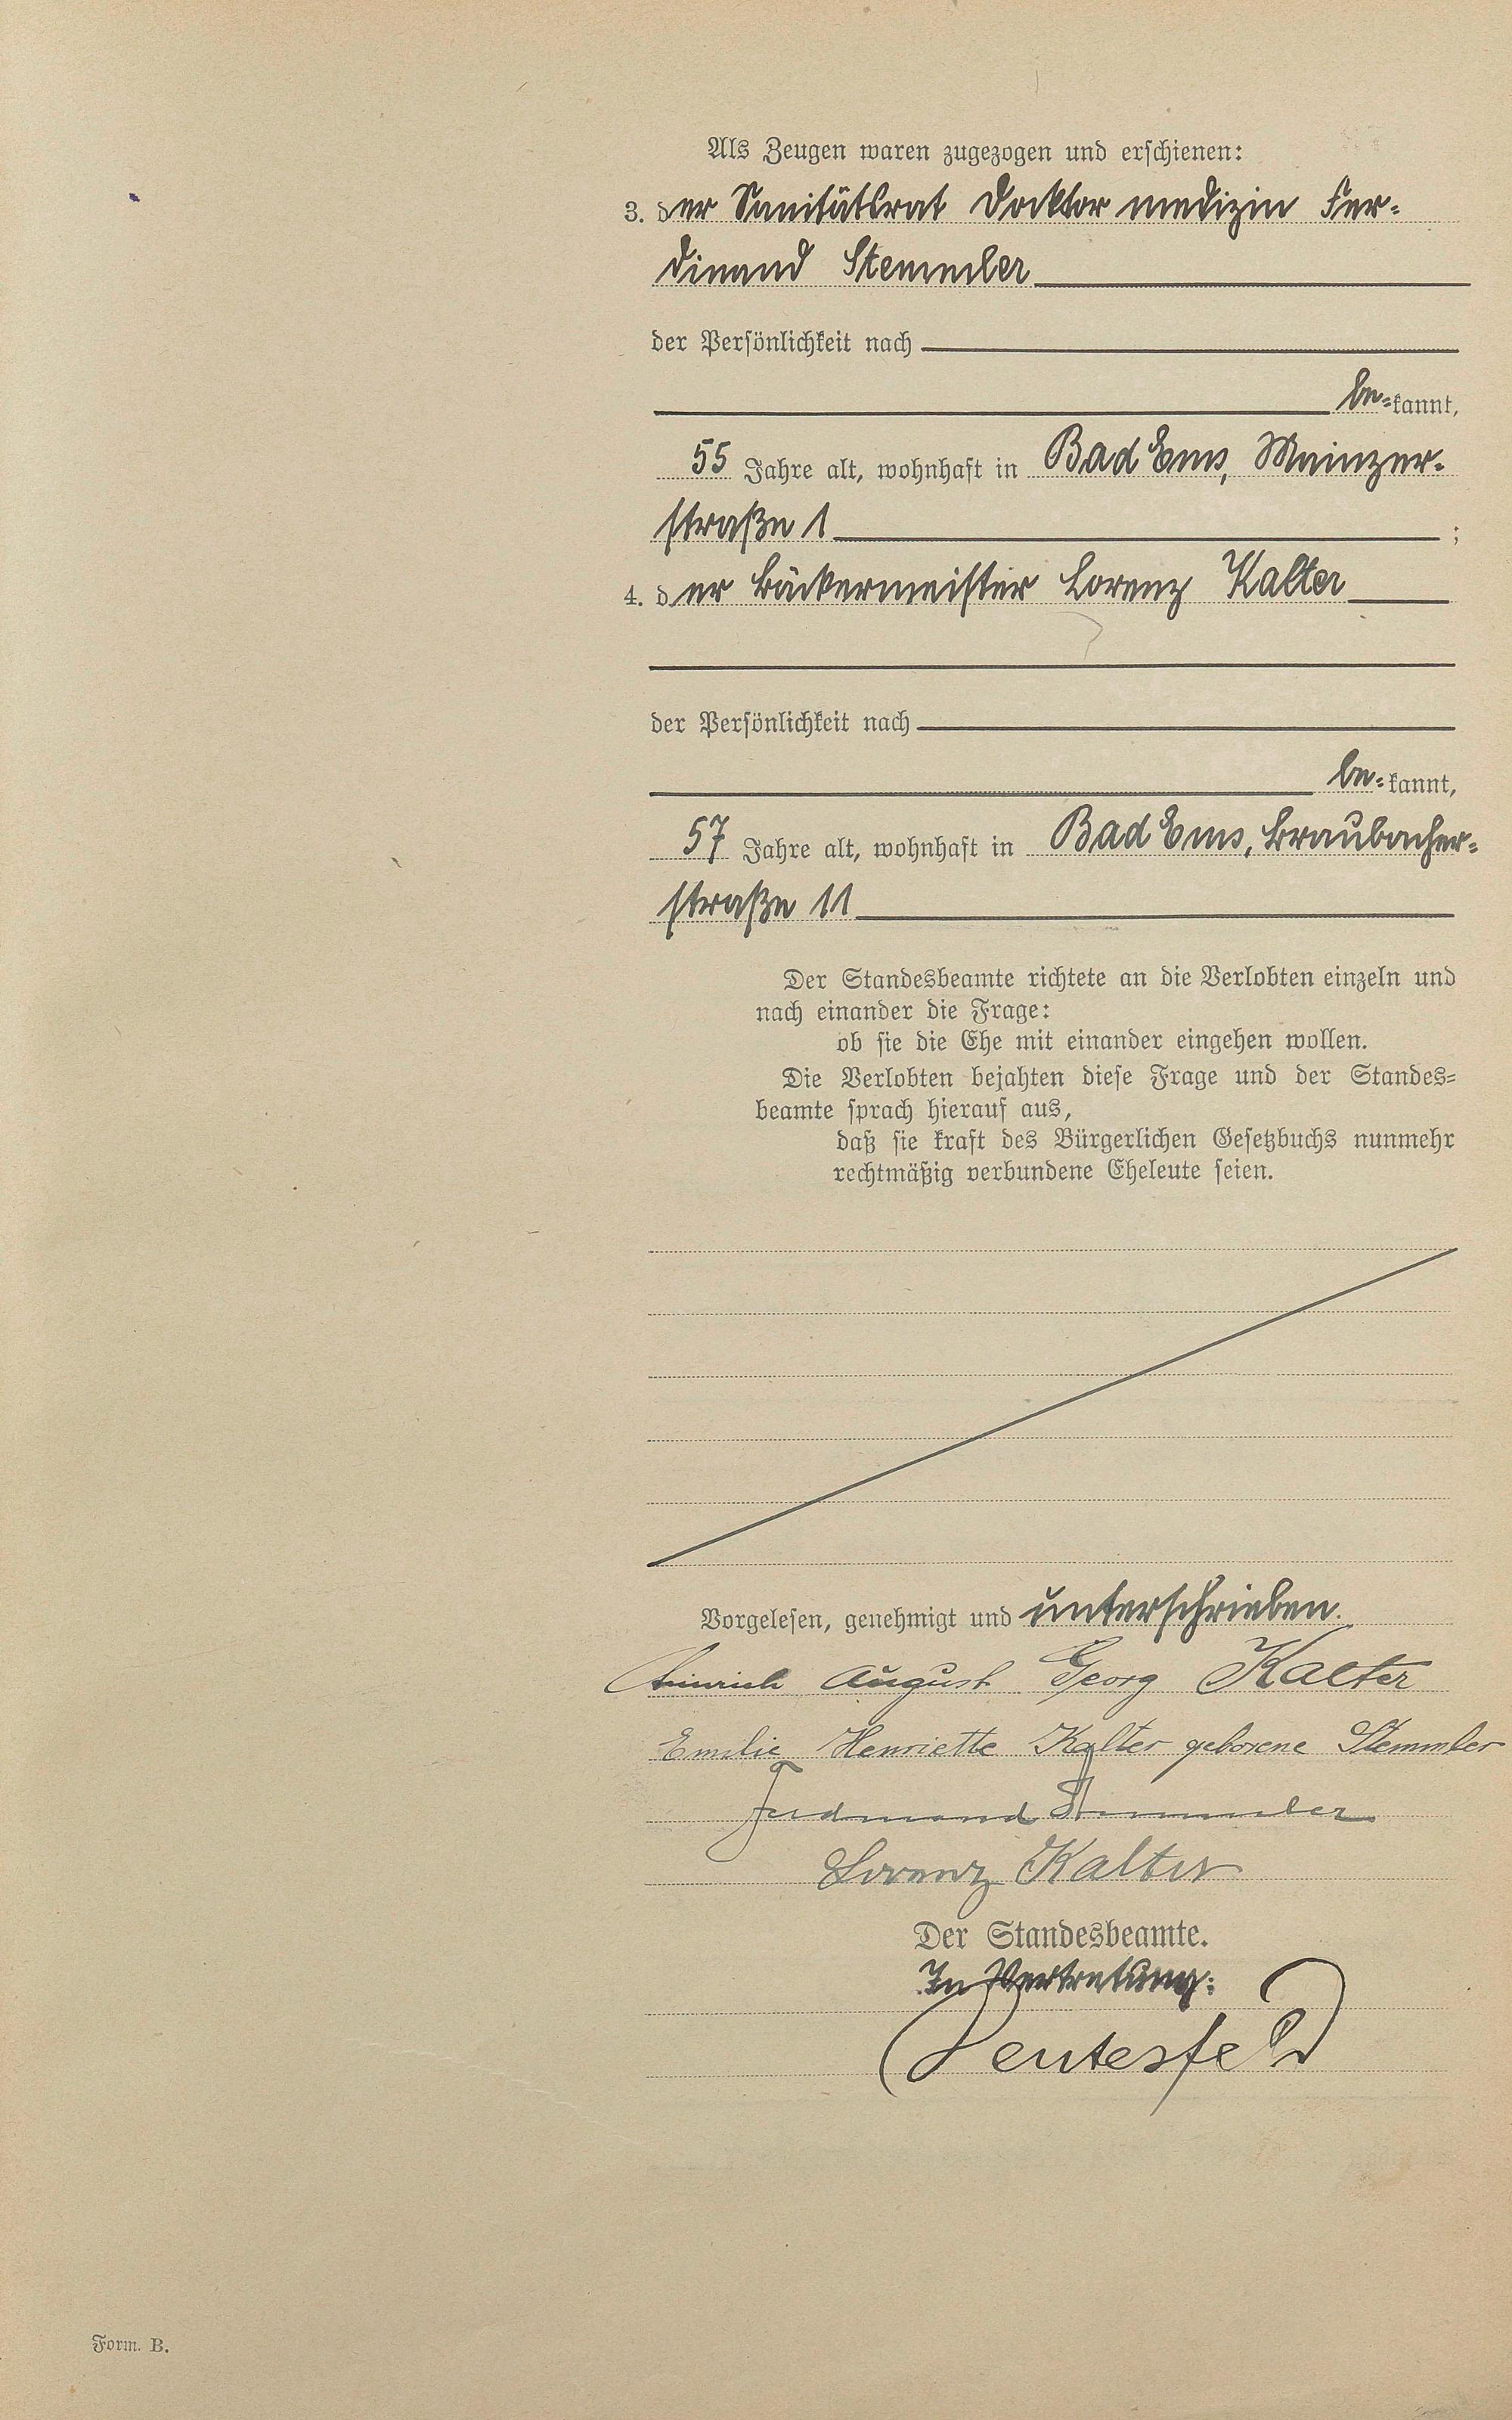 Als Zeugen waren zugezogen und erschienen:
3. der Sanitätsrat Doktor medizin Fer-
dinand Stemmler
der Persönlichkeit nach
be-kannt,
55 Jahre alt, wohnhaft in Bad Ems, Mainzer-
straße 1 ;
4. der Bäckermeister Lorenz Kalter
der Persönlichkeit nach
be-kannt,
57 Jahre alt, wohnhaft in Bad Ems, Braubacher-
straße 11
Der Standesbeamte richtete an die Verlobten einzeln und
nach einander die Frage:
ob sie die Ehe mit einander eingehen wollen.
Die Verlobten bejahten diese Frage und der Standes-
beamte sprach hierauf aus,
daß sie kraft des Bürgerlichen Gesetzbuchs nunmehr
rechtmäßig verbundene Eheleute seien.
Vorgelesen, genehmigt und unterschrieben.
Heinrich August Georg Kalter
Emilie Henriette Kalter geborene Stemmler
Ferdinand Stemmler
Lorenz Kalter
Der Standesbeamte.
In Vertretung:
Form. B.